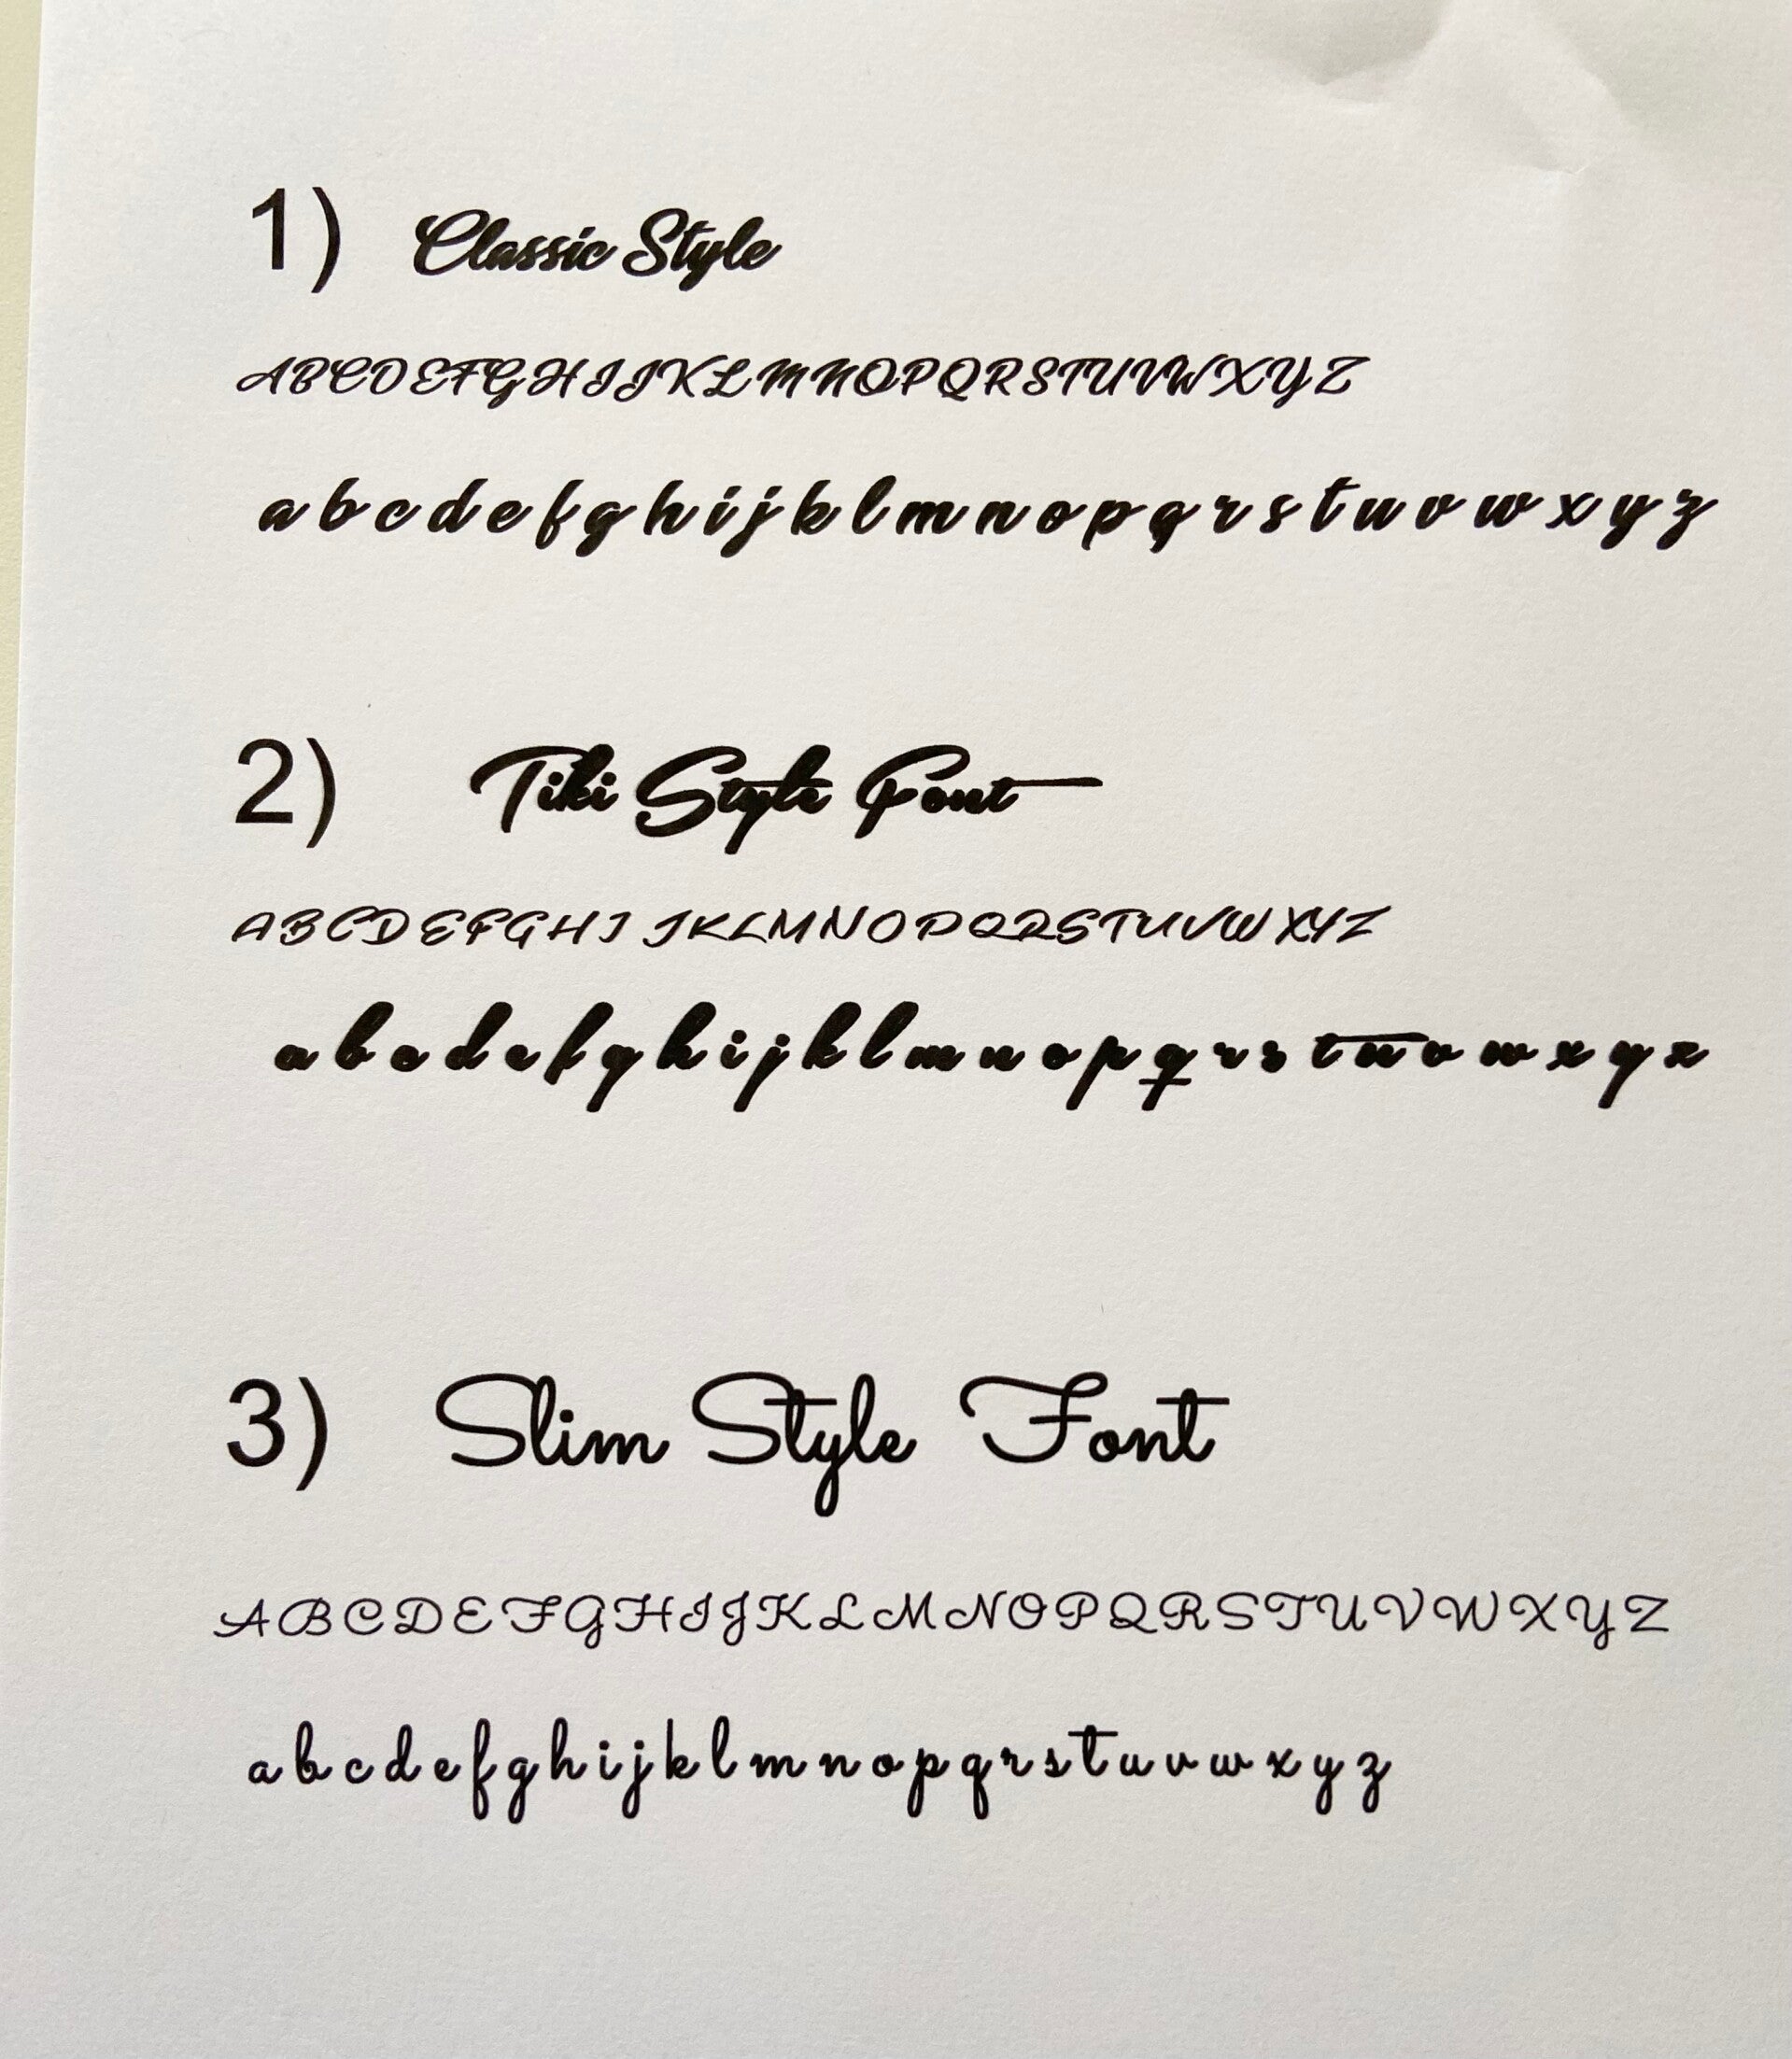 1) Classic Style
ABCDEFGHIJKLMNOPQRSTUVWXYZ
a b c d e f g h i j k l m n o p q r s t u v w x y z
2) Tiki Style Font
ABCDEFGHI JKLMNOPQRSTUVWXYZ
a b c d e f g h i j k l m n o p q r s t u v w x y z
3) Slim Style Font
ABCDEFGHIJKLMNOPQRSTUVWXYZ
a b c d e f g h i j k l m n o p q r s t u v w x y z